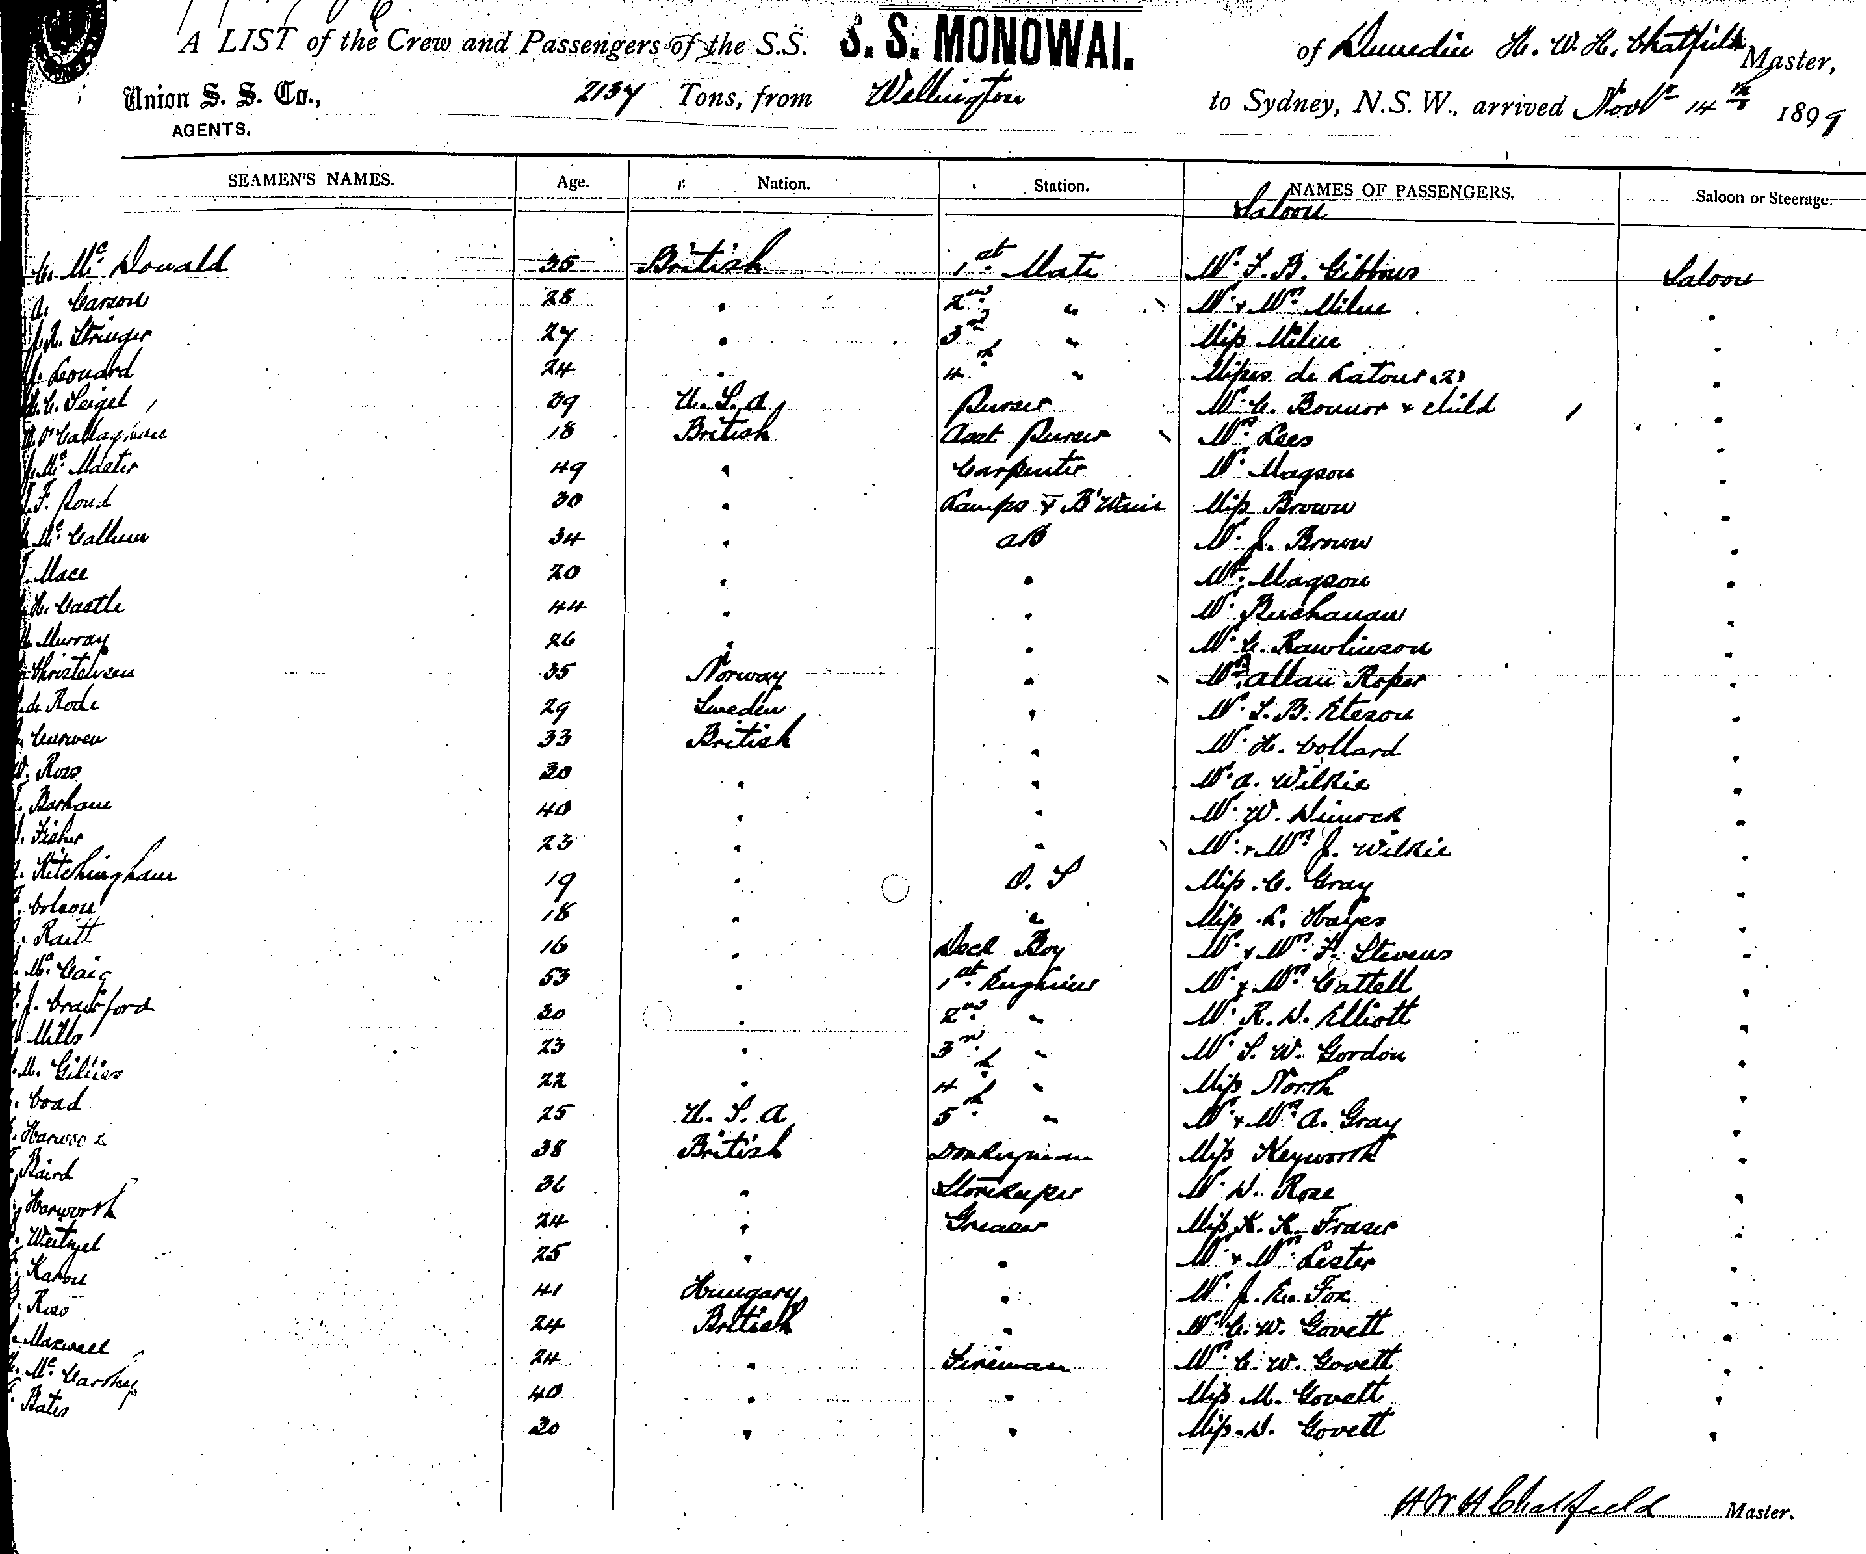 A LIST of the Crew and Passengers of the S.S. S. S. MONOWAI. of Dunedin H. W. H. Chatfield Master,
Union S. S. Co., 2137 Tons, from Wellington to Sydney, N.S.W., arrived Novr 14th 1899
AGENTS.
SEAMEN'S NAMES. Age. Nation. Station. NAMES OF PASSENGERS. Saloon or Steerage.
Saloon
C. Mc Donald 35 British 1st Mate Mr F. B. Gibbons Saloon
A. Carson 28 " 2nd " Mr & Mrs Milne "
Stringer 27 " 3rd " Miss Milne "
Leonard 24 " 4th " Misses de Latour (2) "
C. Seigel 39 U.S.A. Purser Mr C. Bonnor & child "
O'Callaghan 18 British Asst Purser Mrs Lees "
Mc Master 49 " Carpenter Mr Magson "
F. Pond 30 " Lamps & B'Swain Miss Brown "
Mc Callum 34 " AB Mr J. Brown "
Mace 20 " " Mr Magson "
H. Castle 44 " " Mr Buchanan "
Murray 26 " " Mr C. Rawlinson "
Christensen 35 Norway " Mrs Allan Roper "
de Rode 29 Sweden " Mr S. B. Eteson "
Curwen 33 British " Mr H. Collard "
W. Ross 30 " " Mr A. Wilkie "
Barham 40 " " Mr W. Dimock "
Fisher 23 " " Mr & Mrs J. Wilkie "
Kitchingham 19 " O. S Miss C. Gray "
Colson 18 " " Miss L. Hayes "
Raitt 16 " Deck Boy Mr & Mrs F. Stevens "
Mc Caig 53 " 1st Engineer Mr & Mrs Cattell "
J. Crawford 30 " 2nd " Mr R. D. Elliott "
Mills 23 " 3rd " Mr S. W. Gordon "
M. Gillies 22 " 4th " Miss North "
Coad 25 U.S.A. 5th " Mr & Mrs A. Gray "
Harwood 38 British Donkeyman Miss Heyworth "
Baird 36 " Storekeeper Mr D. Rose "
Harworth 24 " Greaser Miss K. K. Fraser "
Weitzel 25 " " Mr & Mrs Lester "
Karon 41 Hungary " Mr J. En. Fox "
Ross 24 British " Mr C. W. Govett "
Maxwell 24 " Fireman Mrs C. W. Govett "
Mc Carthy 40 " " Miss M. Govett "
Bates 30 " " Miss D. Govett "
H W H Chatfield Master.